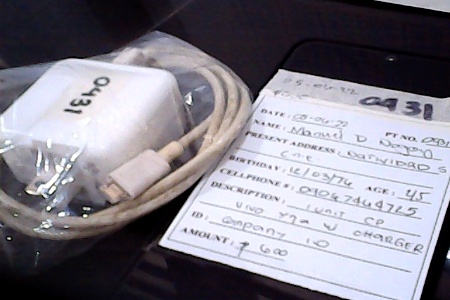 0431
05-04-22
0431
DATE: 05-04-22
NAME: Manuel D PT NO. 0431
PRESENT ADDRESS:
BIRTHDAY: 12/03/76 AGE: 45
CELLPHONE #: 09047949725
DESCRIPTION: 1 unit CP
VIVO Y9A W CHARGER
ID: Company ID
AMOUNT: ₱ 600